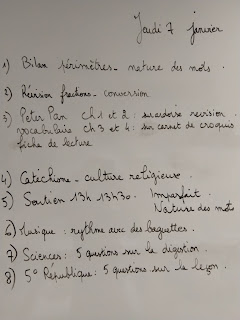 Jeudi 7 janvier
1) Bilan périmètres - nature des mots.
2) Révision fractions - conversion
3) Peter Pan ch 1 et 2 : sur ardoise révision
vocabulaire ch 3 et 4 : sur carnet de croquis
fiche de lecture
4) Catéchisme - culture religieuse.
5) Soutien 13h 13h30. Imparfait.
Nature des mots
6) Musique : rythme avec des baguettes.
7) Sciences : 5 questions sur la digestion.
8) 5° République : 5 questions sur la leçon.